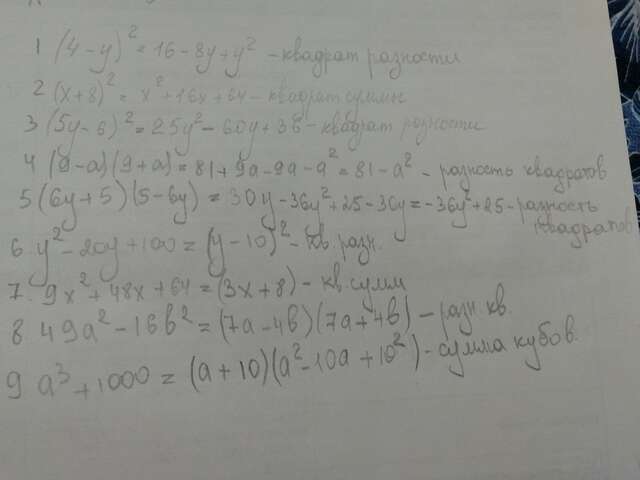 1 (4-y)² = 16-8y+y² - квадрат разности
2 (x+8)² = x²+16x+64 - квадрат суммы
3 (5y-6)² = 25y² - 60y+36 - квадрат разности
4 (9-a)(9+a) = 81+9a-9a-a² = 81-a² - разность квадратов
5 (6y+5)(5-6y) = 30y-36y²+25-30y = -36y²+25 - разность
квадратов
6. y²-20y+100 = (y-10)² - кв. разн.
7. 9x²+48x+64 = (3x+8) - кв. сумм
8 49a²-16b² = (7a-4b)(7a+4b) - разн. кв.
9 a³+1000 = (a+10)(a²-10a+10²) - сумма кубов.